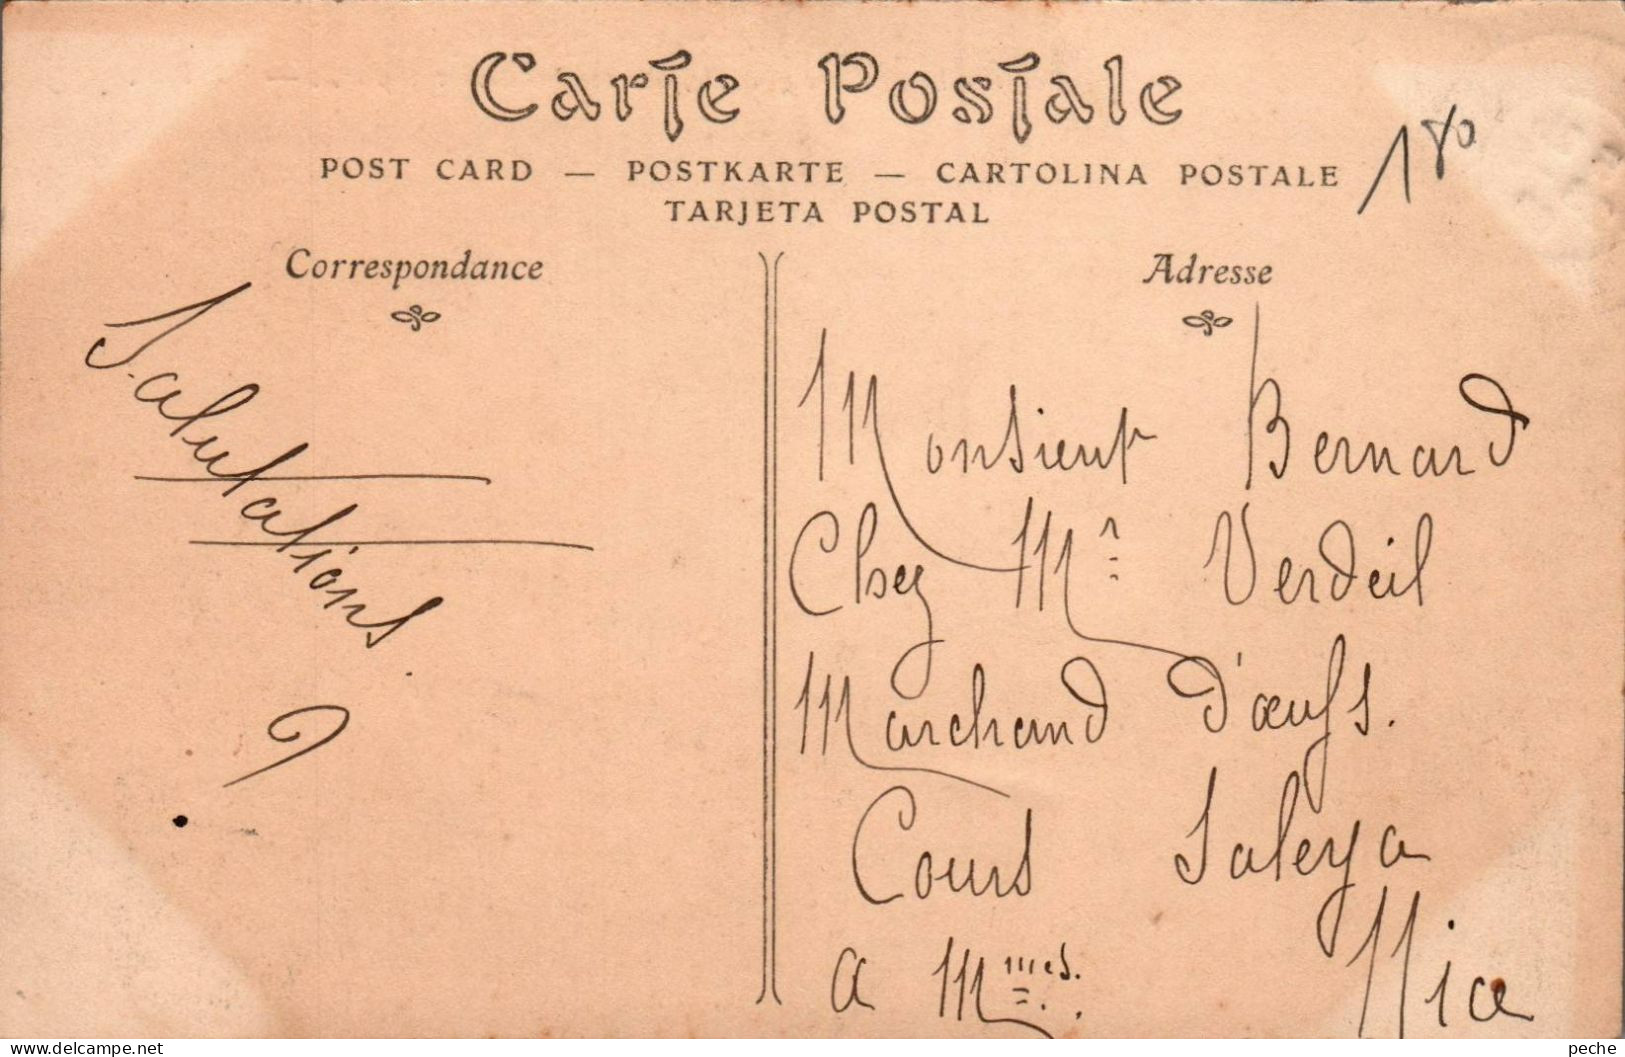 Carte Postale
POST CARD — POSTKARTE — CARTOLINA POSTALE
TARJETA POSTAL
180
Correspondance
Adresse
Salutations.
Monsieur Bernard
Chez Mr Verdeil
Marchand d'œufs.
Cours Saleya
a Mmes. Nice
peche